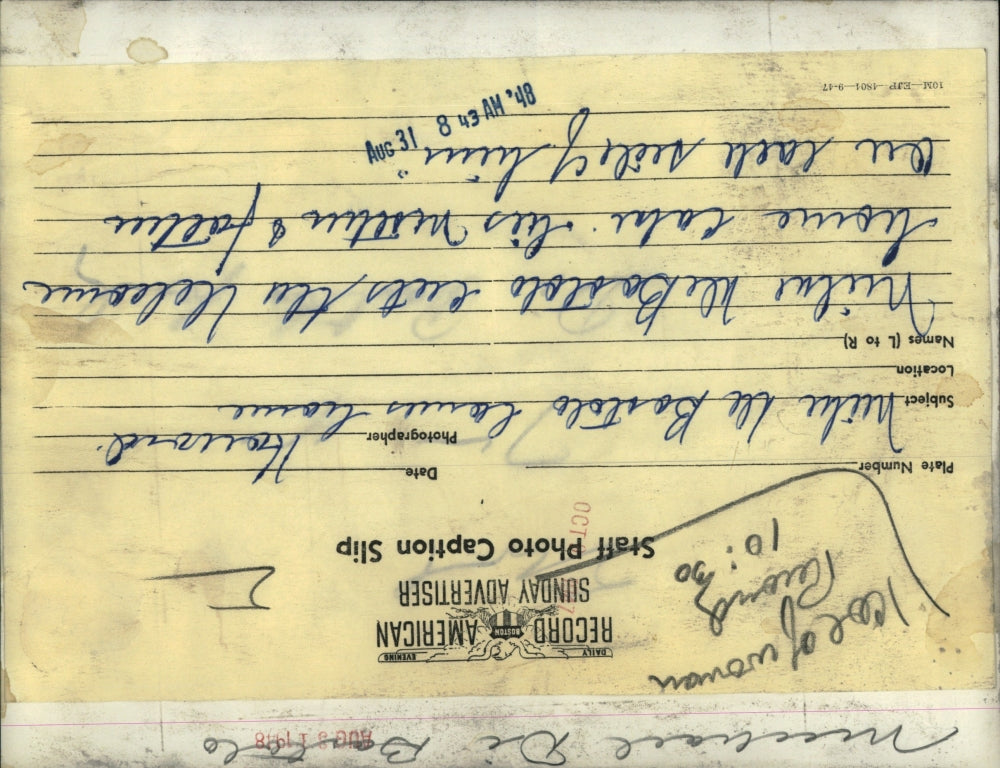 Michael Di Bartolo
AUG 31 1948
1 col of woman
Record
10:30
DAILY EVENING
RECORD BOSTON AMERICAN
SUNDAY ADVERTISER
Staff Photo Caption Slip
OCT
Plate Number
Date
Subject Mike De Bartolo comes home
Photographer
Location
Names (L to R)
Mike De Bartolo cuts the Welcome
home cake. His mother & father
on each side of him.
AUG 31 8 43 AM '48
10M-EJP-4801 9-47